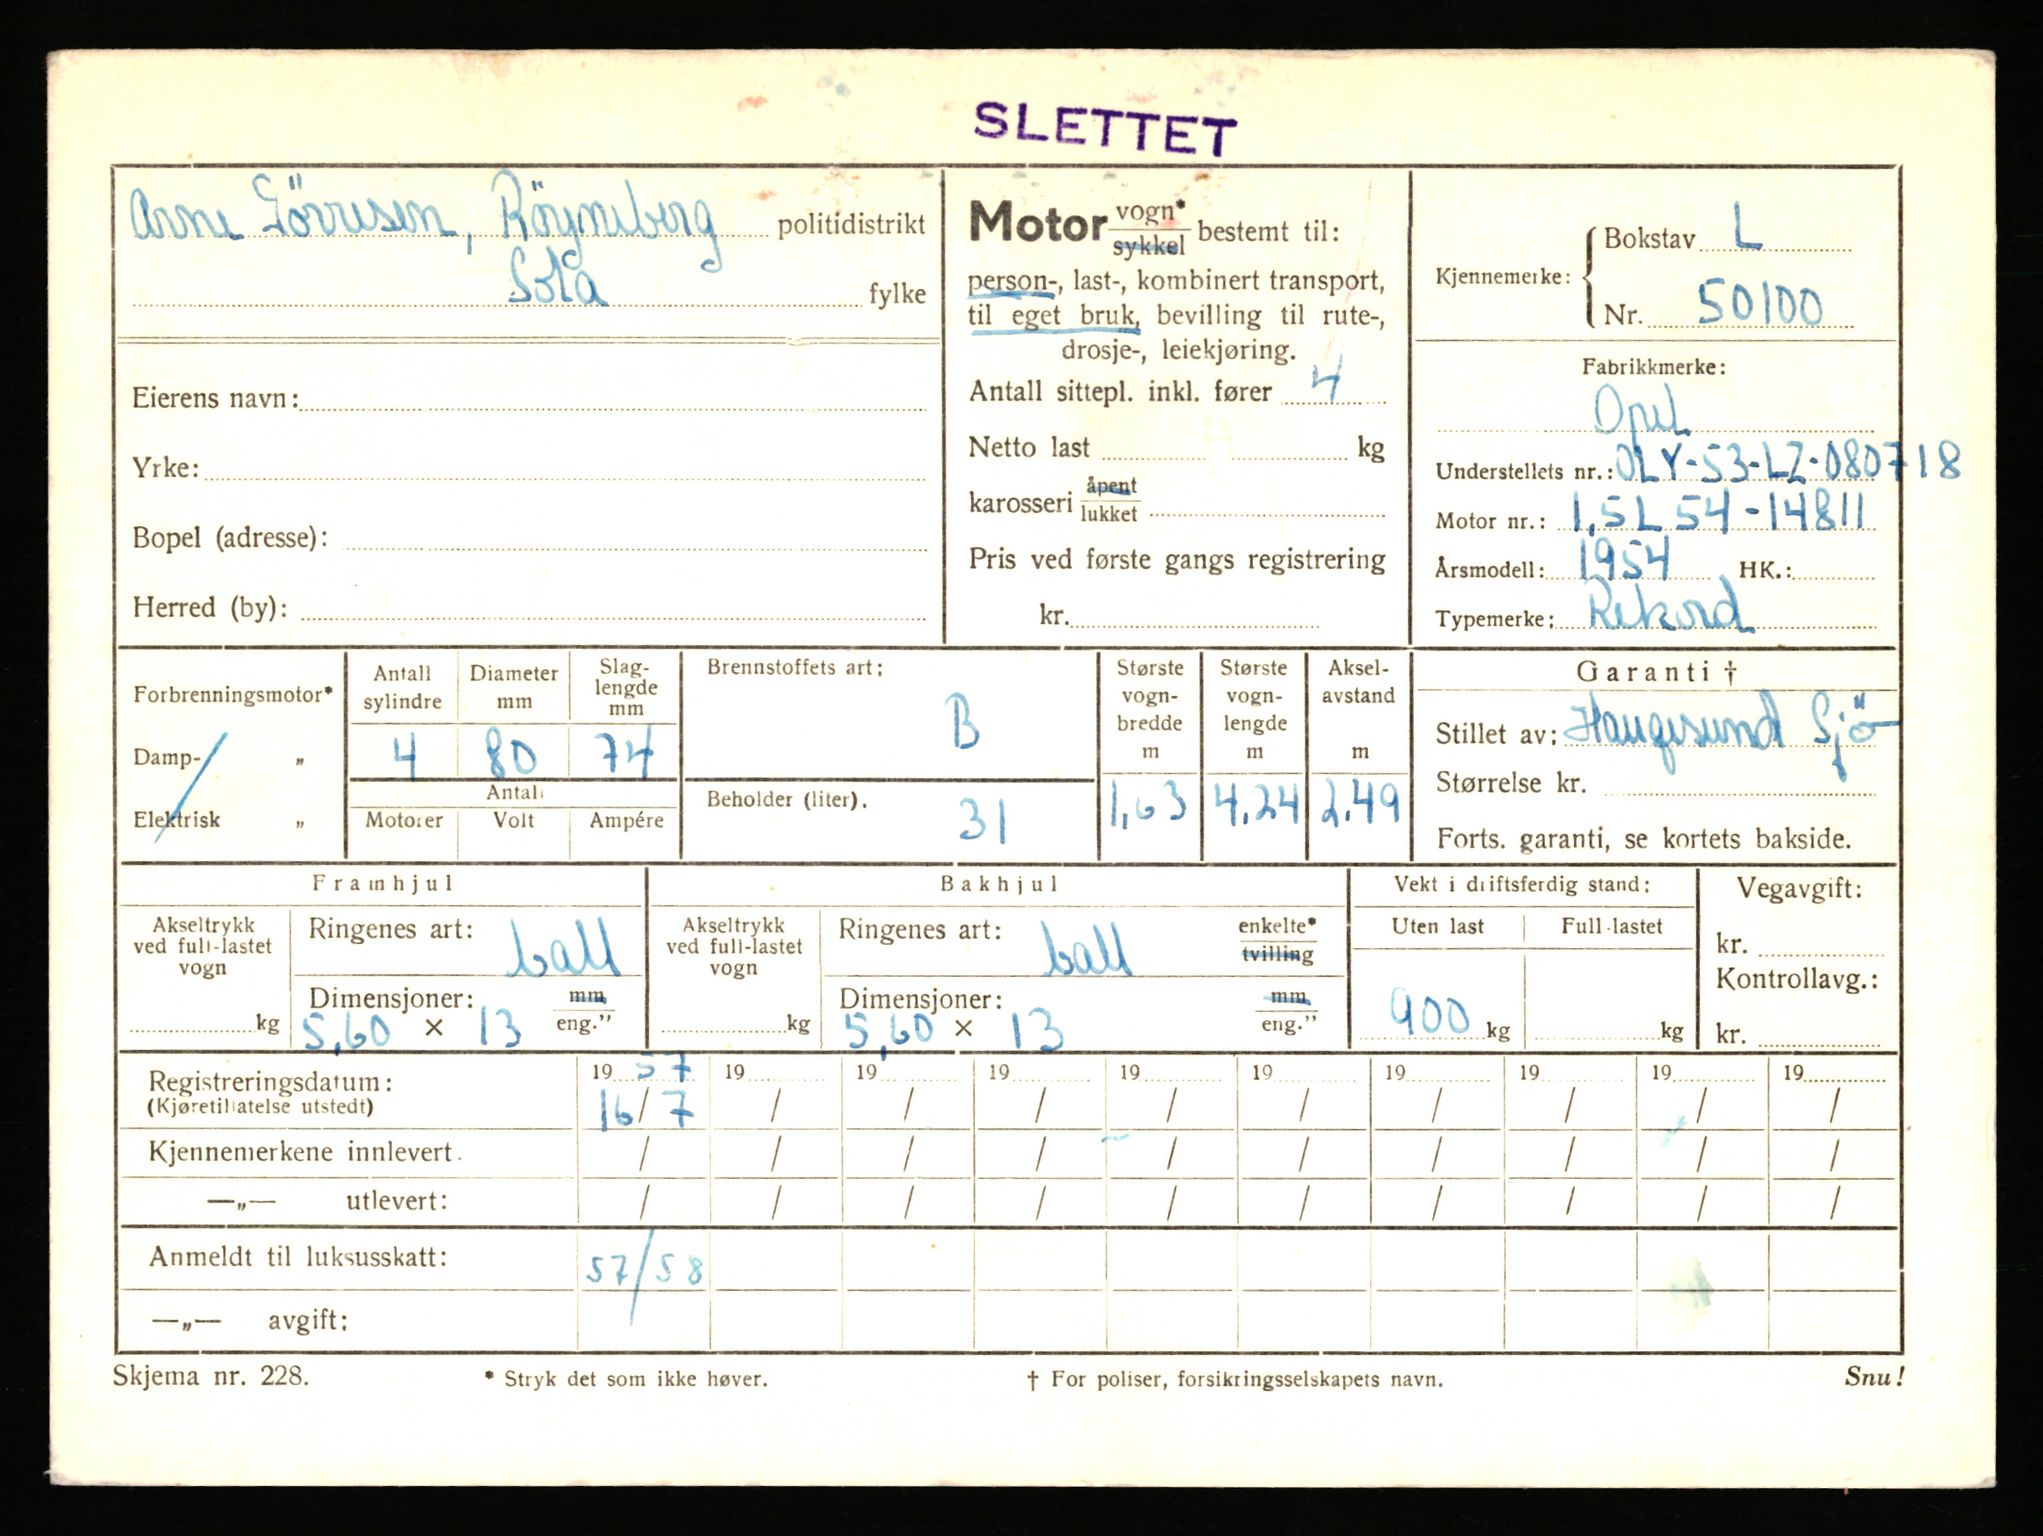 SLETTET
Arne Törresen, Röyneberg politidistrikt
Sola fylke
Eierens navn:
Yrke:
Bopel (adresse):
Herred (by):
Motor vogn* sykkel bestemt til:
person-, last-, kombinert transport,
til eget bruk, bevilling til rute-,
drosje-, leiekjøring.
Antall sittepl. inkl. fører 4
Netto last kg
karosseri åpent lukket
Pris ved første gangs registrering
kr.
Kjennemerke: Bokstav L
Nr. 50100
Fabrikkmerke:
Opel
Understellets nr.: OLY-53-LZ-080718
Motor nr.: 1,5L 54-14811
Årsmodell: 1954 HK.:
Typemerke: Rekord
Forbrenningsmotor*
Damp- „
Elektrisk „
Antall sylindre
4
Diameter mm
80
Slag-
lengde
mm
74
Antall
Motorer Volt Ampére
Brennstoffets art:
B
Beholder (liter).
31
Største
vogn-
bredde
m
1,63
Største
vogn-
lengde
m
4.24
Aksel-
avstand
m
2.49
Garanti †
Stillet av: Haugesund Sjö
Størrelse kr.
Forts. garanti, se kortets bakside.
Framhjul
Akseltrykk
ved full-lastet
vogn
kg
Ringenes art: ball
Dimensjoner: mm
5,60 × 13 eng.”
Bakhjul
Akseltrykk
ved full-lastet
vogn
kg
Ringenes art: ball enkelte*
tvilling
Dimensjoner: mm
5,60 × 13 eng.”
Vekt i driftsferdig stand:
Uten last Full-lastet
900 kg kg
Vegavgift:
kr.
Kontrollavg.:
kr.
Registreringsdatum: 19 57 19 19 19 19 19 19 19 19 19
(Kjøretillatelse utstedt) 16/7 / / / / / / / / /
Kjennemerkene innlevert. / / / / / / / / / /
—„— utlevert: / / / / / / / / / /
Anmeldt til luksusskatt: 57/58
—„— avgift:
Skjema nr. 228. * Stryk det som ikke høver. † For poliser, forsikringsselskapets navn. Snu!